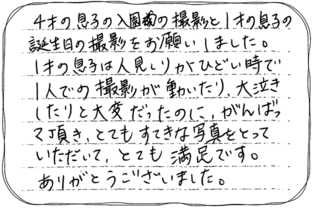 4才の息子の入園前の撮影と1才の息子の
誕生日の撮影をお願いしました。
1才の息子は人見しりがひどい時で
1人での撮影が動いたり、大泣き
したりと大変だったのに、がんばっ
て頂き、とてもすてきな写真をとって
いただいて、とても満足です。
ありがとうございました。